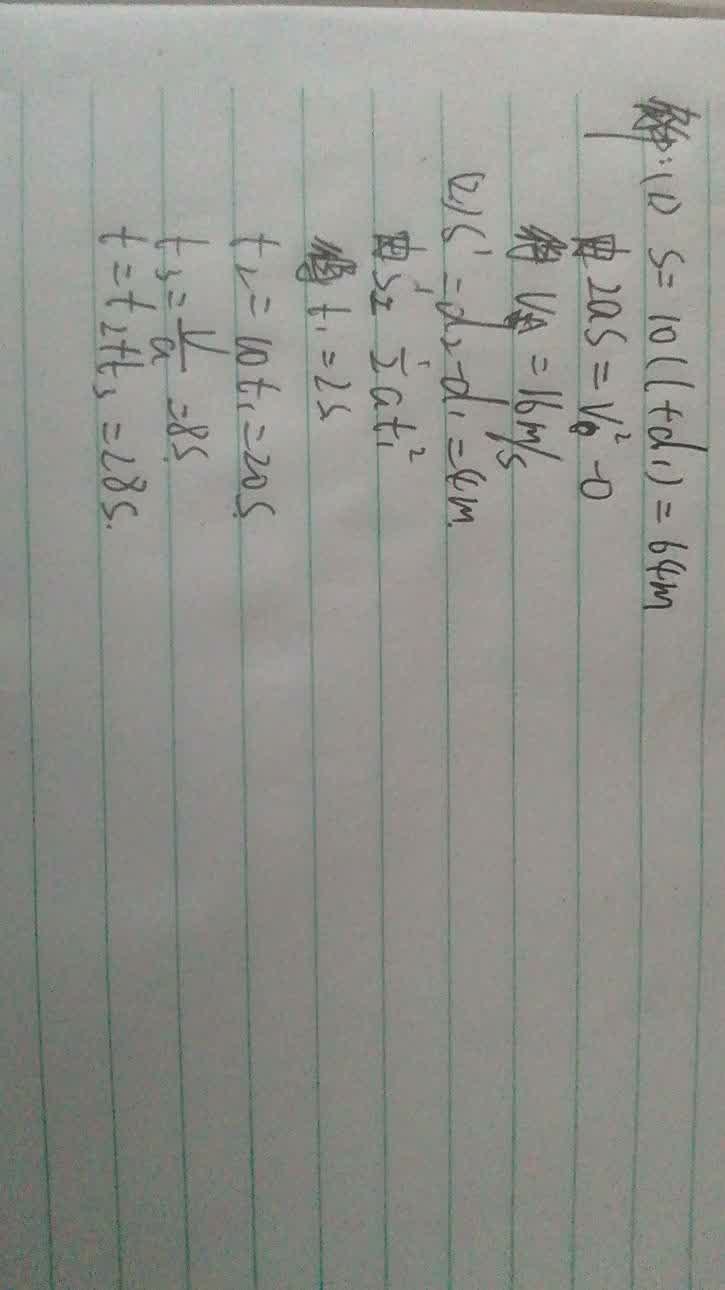 解:(1) S=10(l+d₁)=64m
由 2aS=V₀²-0
得 V₀=16m/s
(2) S'=d₂-d₁=4m
由 S'=½at₁²
得 t₁=2s
t₂=10t₁=20s
t₃=V/a=8s
t=t₂+t₃=28s.